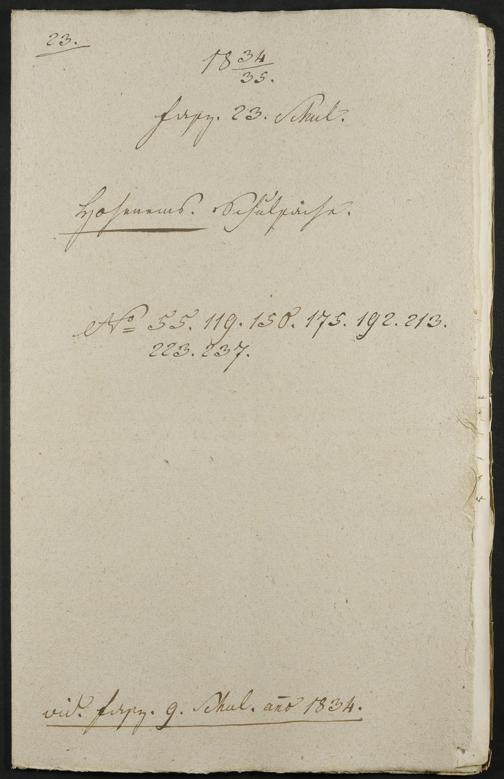 23.
18 34/35.
fasz. 23. Schul.
Hohenems. Schulsache.
No 55. 119. 150. 175. 192. 213.
223. 237.
vid. fasz. 9. Schul. ano 1834.